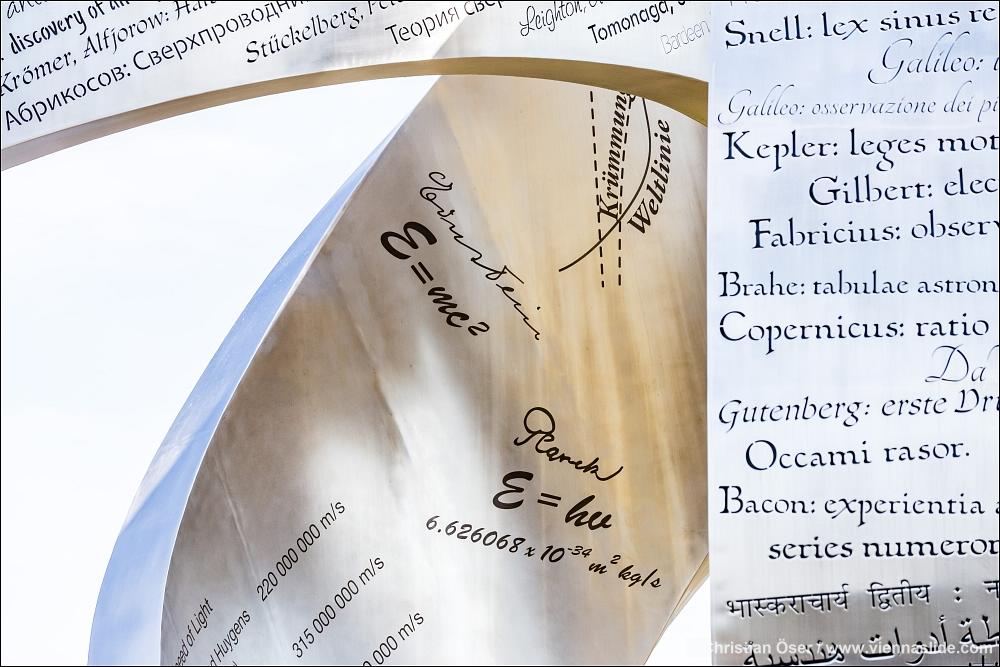 discovery of an
Krömer, Alfjorow:
Абрикосов: Сверхпроводни
Stückelberg, Fe
Теория свер
Leighton,
Tomonaga,
Bardeen
Krümmung
Weltlinie
Einstein
E=mc²
Planck
E=hν
6.626068 x 10⁻³⁴ m² kg/s
eed of Light
220 000 000 m/s
d Huygens
315 000 000 m/s
000 m/s
Snell: lex sinus re
Galileo:
Galileo: osservazione dei pi
Kepler: leges mot
Gilbert: elec
Fabricius: observ
Brahe: tabulae astron
Copernicus: ratio
Da
Gutenberg: erste Dru
Occami rasor.
Bacon: experientia
series numeror
भास्कराचार्य द्वितीय : न
أدوات هندسية
Christian Öser / www.viennaslide.com